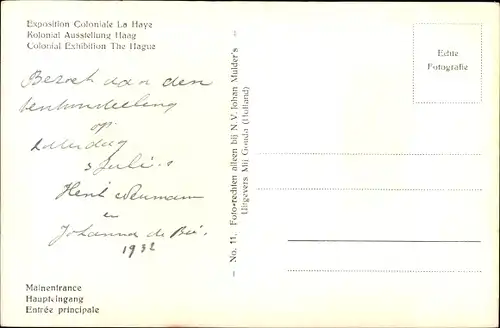 Exposition Coloniale La Haye
Kolonial Ausstellung Haag
Colonial Exhibition The Hague
Bezoek aan den
tentoonstelling
op
Zaterdag
Juli
Henk Neumann
en
Johanna de
1932
Mainentrance
Haupteingang
Entrée principale
No. 11. Foto-rechten alleen bij N.V. Johan Mulder's
Uitgevers Mij Gouda (Holland)
Echte
Fotografie